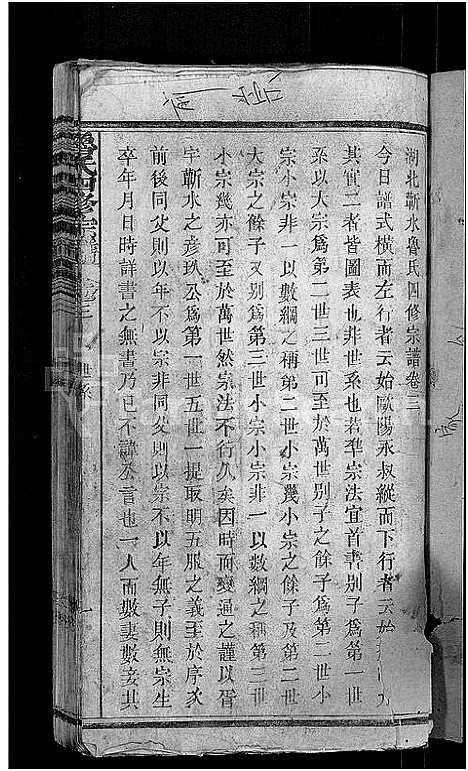 湖北蘄水魯氏四修宗譜卷三
今日譜式橫而左行者云始歐陽永叔縱而下行者云始
其實二者皆圖表也非世系也若準宗法宜首書別子為第一世
系以大宗為第二世三世可至於萬世別子之餘子為第二世小
宗小宗非一以數綱之稱第二世小宗幾小宗之餘子及第二世
大宗之餘子又別為第三世小宗小宗非一以數綱之稱第三世
小宗幾亦可至於萬世然宗法不行久矣因時而變通之謹以胥
宇蘄水之彥玖公為第一世五世一提取明五服之義至於序次
前後同父則以年不以宗非同父則以宗不以年無子則無宗生
卒年月日時詳書之無書乃已不諱公言也一人而數妻數妾其
魯氏四修宗譜
世系
一